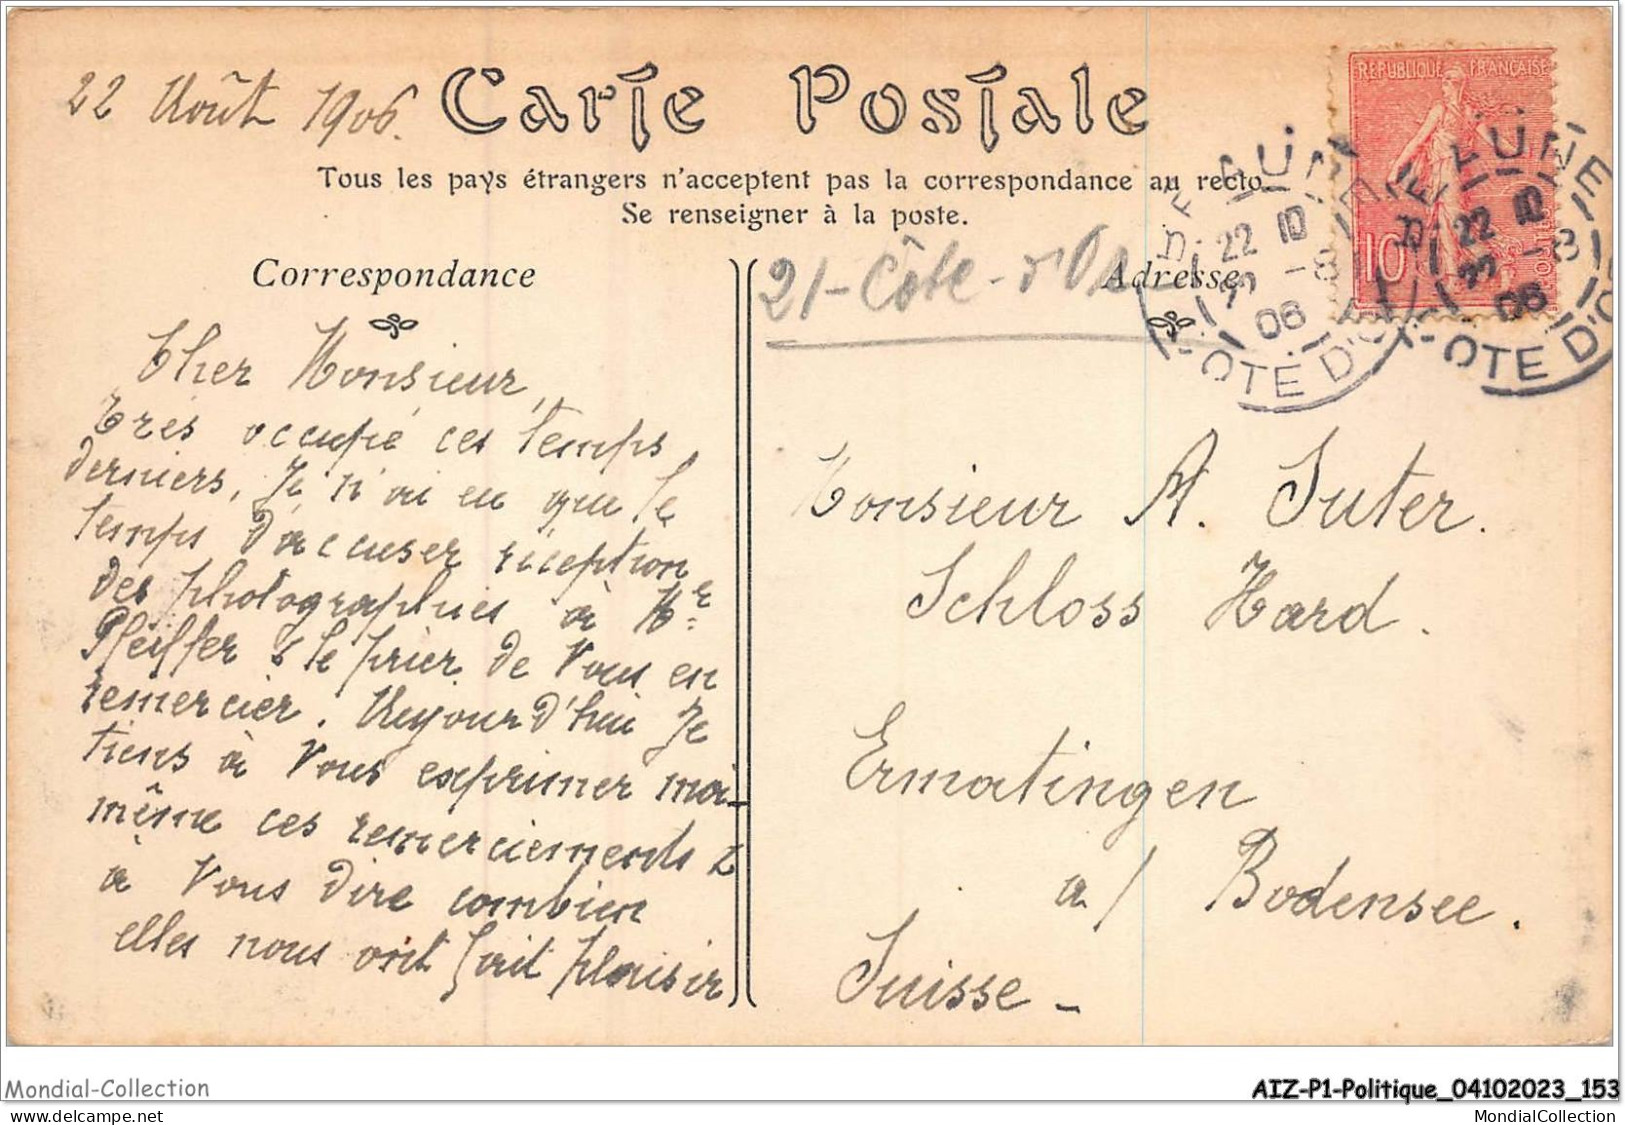 22 Août 1906.
Carte Postale
Tous les pays étrangers n'acceptent pas la correspondance au recto
Se renseigner à la poste.
RÉPUBLIQUE FRANÇAISE
10
POSTES
BEAUNE
22 8
06
CÔTE D'OR
BEAUNE
22 8
06
CÔTE D'OR
21-Côte-d'Or
Correspondance
Cher Monsieur,
Très occupé ces temps
derniers, Je n'ai eu que le
temps d'accuser réception
des photographies à Mr
Pfeiffer & le prier de vous en
remercier. Aujourd'hui Je
tiens à vous exprimer moi-
même ces remerciements &
à vous dire combien
elles nous ont fait plaisir
Adresse
Monsieur A. Suter.
Schloss Hard.
Ermatingen
a/ Bodensee.
Suisse-
Mondial-Collection
AIZ-P1-Politique_04102023_153
www.delcampe.net
MondialCollection